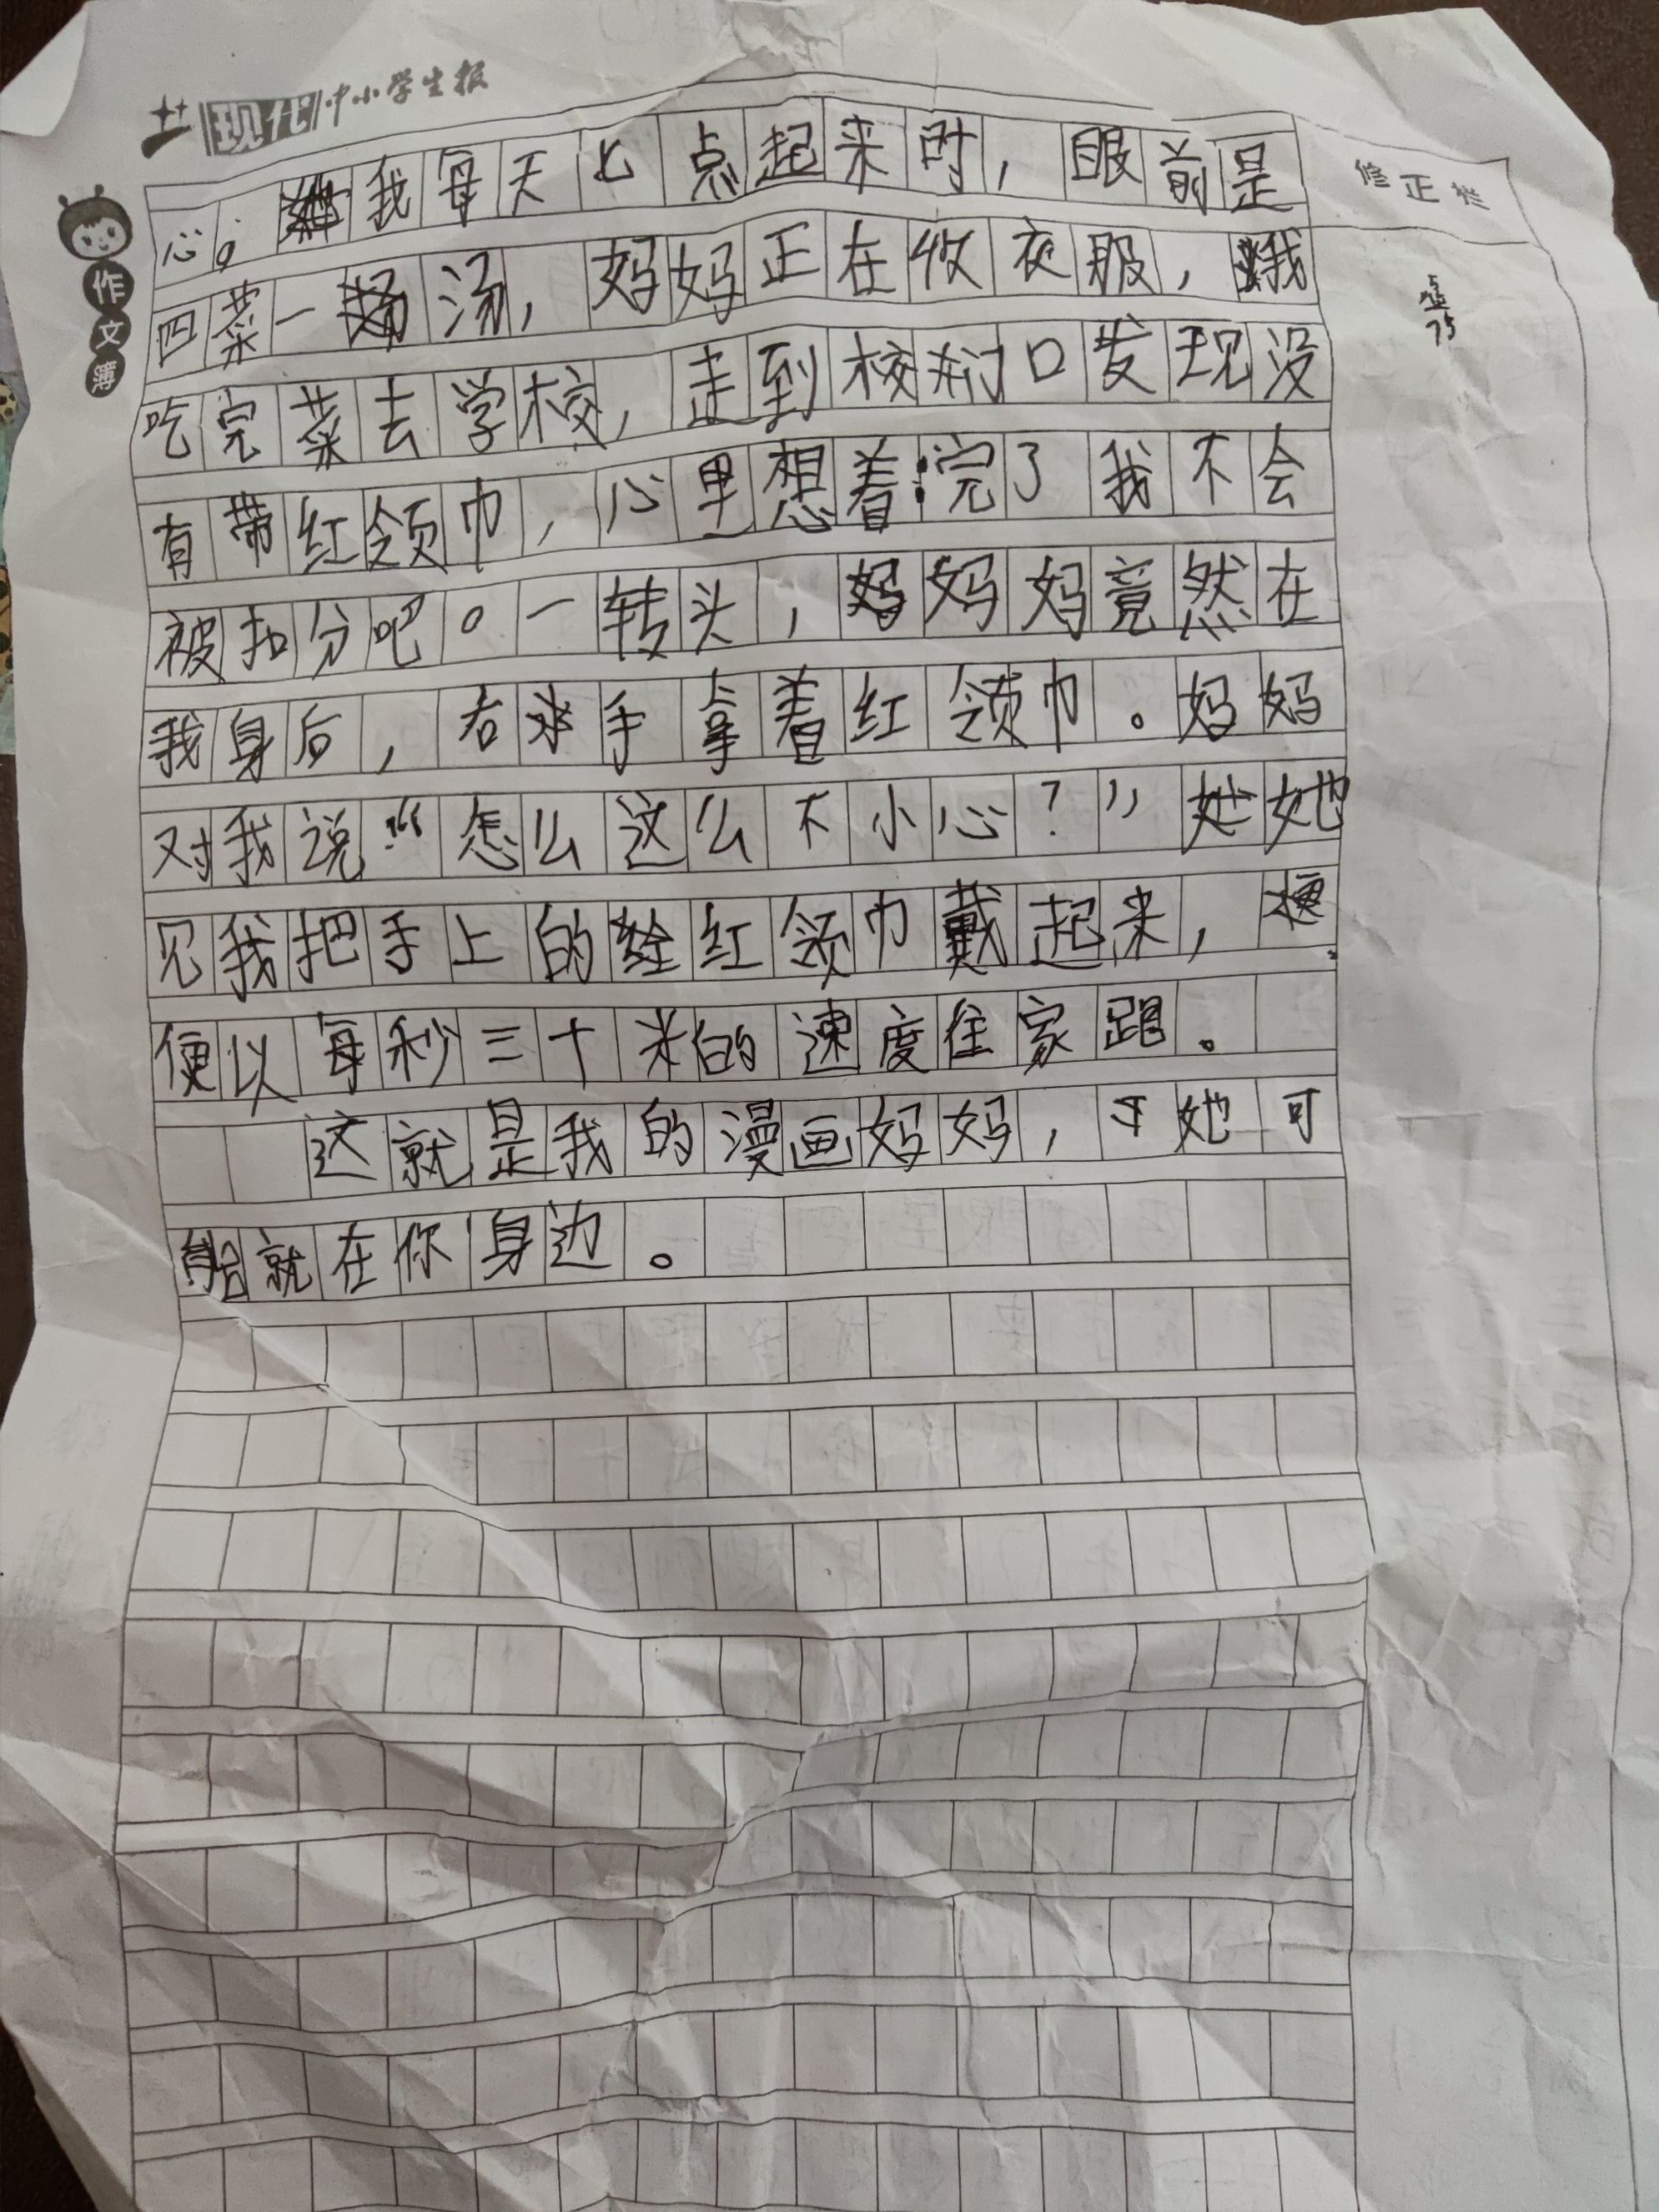 现代中小学生报
作文簿
修正栏
心。我每天七点起来时，眼前是
四菜一汤，妈妈正在收衣服，我
吃完菜去学校，走到校门口发现没
有带红领巾，心里想着：完了我不会
被扣分吧。一转头，妈妈竟然在
我身后，右手拿着红领巾。妈妈
对我说：“怎么这么不小心？”她
见我把手上的红领巾戴起来，
便以每秒三十米的速度往家跑。
这就是我的漫画妈妈，她可
能就在你身边。